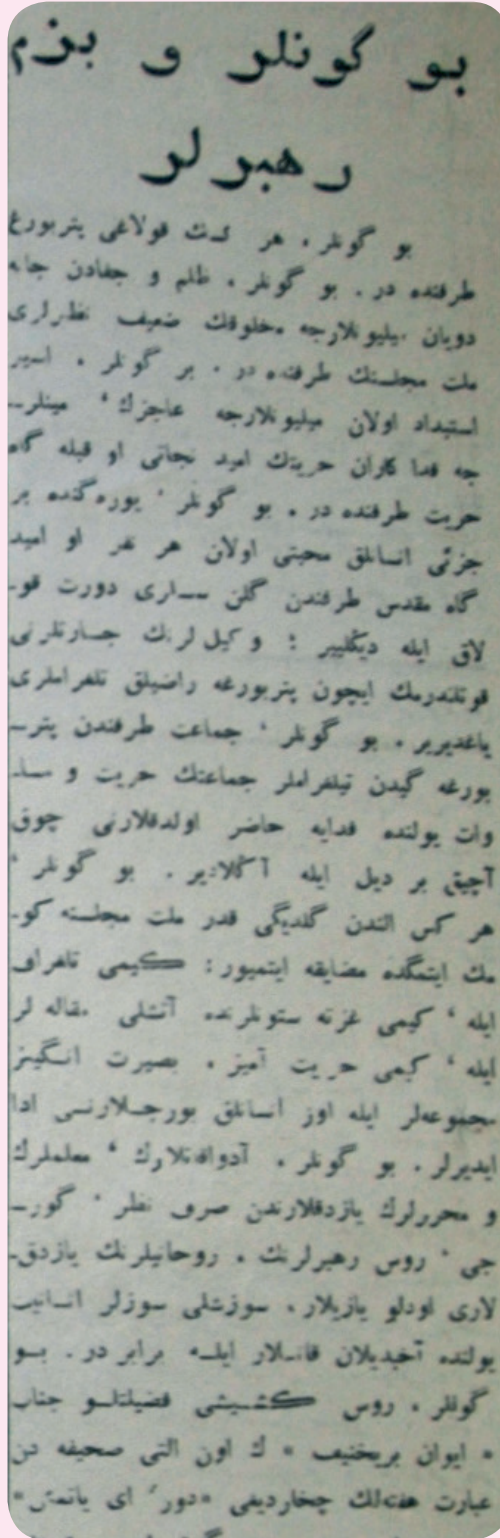 بو گونلر و بزم
رهبرلر
بو گونلر، هر كسك قولاغى پتربورغ
طرفنده در. بو گونلر، ظلم و جفادن جانه
دويان ميليونلارجه مخلوقك ضعيف نظرلرى
ملت مجلسنك طرفنده در. بو گونلر، اسير
استبداد اولان ميليونلارجه عاجزك، مينلر-
جه فدا كاران حريتك اميد نجاتى او قبله گاه
حريت طرفنده در. بو گونلر، يوره گنده بر
جزئى انسانلق محبتى اولان هر نفر او اميد
گاه مقدس طرفندن گلن سسلرى دورت قو-
لاق ايله ديكليير؛ وكيل لرنك جسارتلرنى
قوتلندرمك ايچون پتربورغه راضيلق تلغرافلرى
ياغديرير. بو گونلر، جماعت طرفندن پتر-
بورغه گيدن تيلغرافلر جماعتك حريت و مسا-
وات يولنده فدايه حاضر اولدقلارنى چوق
آچيق بر ديل ايله آكلاتير. بو گونلر،
هر كس الندن گلديگى قدر ملت مجلسنه كو-
مك ايتمگده مضايقه ايتميور: كيمى تلغراف
ايله، كيمى غزته ستونلرنده آتشلى مقاله لر
ايله، كيمى حريت آميز، بصيرت انگيز
مجموعه لر ايله اوز انسانلق بورجلارنى ادا
ايديرلر. بو گونلر، آدوقاتلارك، معلملرك
و محررلرك يازدقلارندن صرف نظر، گور-
جى، روس رهبرلرنك، روحانيلرنك يازدق-
لارى اودلو يازيلار، سوزشلى سوزلر انسانيت
يولنده آخيديلان قانلار ايله برابر در. بو
گونلر، روس كشيشى فضيلتلو جناب
« ايوان بريخنيف » ك اون التى صحيفه دن
عبارت هفته لك چخارديغى «دور، اى ياتمش»